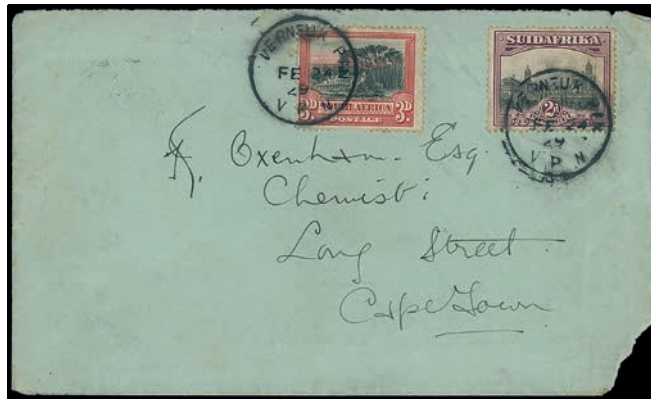 VERNEUK PAN
FE 24
29
V P N
SOUTH AFRICA
3D 3D
POSTAGE
SUIDAFRIKA
2D
VERNEUK
FE 24
29
V P N
A. Oxenham. Esq.
Chemist:
Long Street.
Cape Town